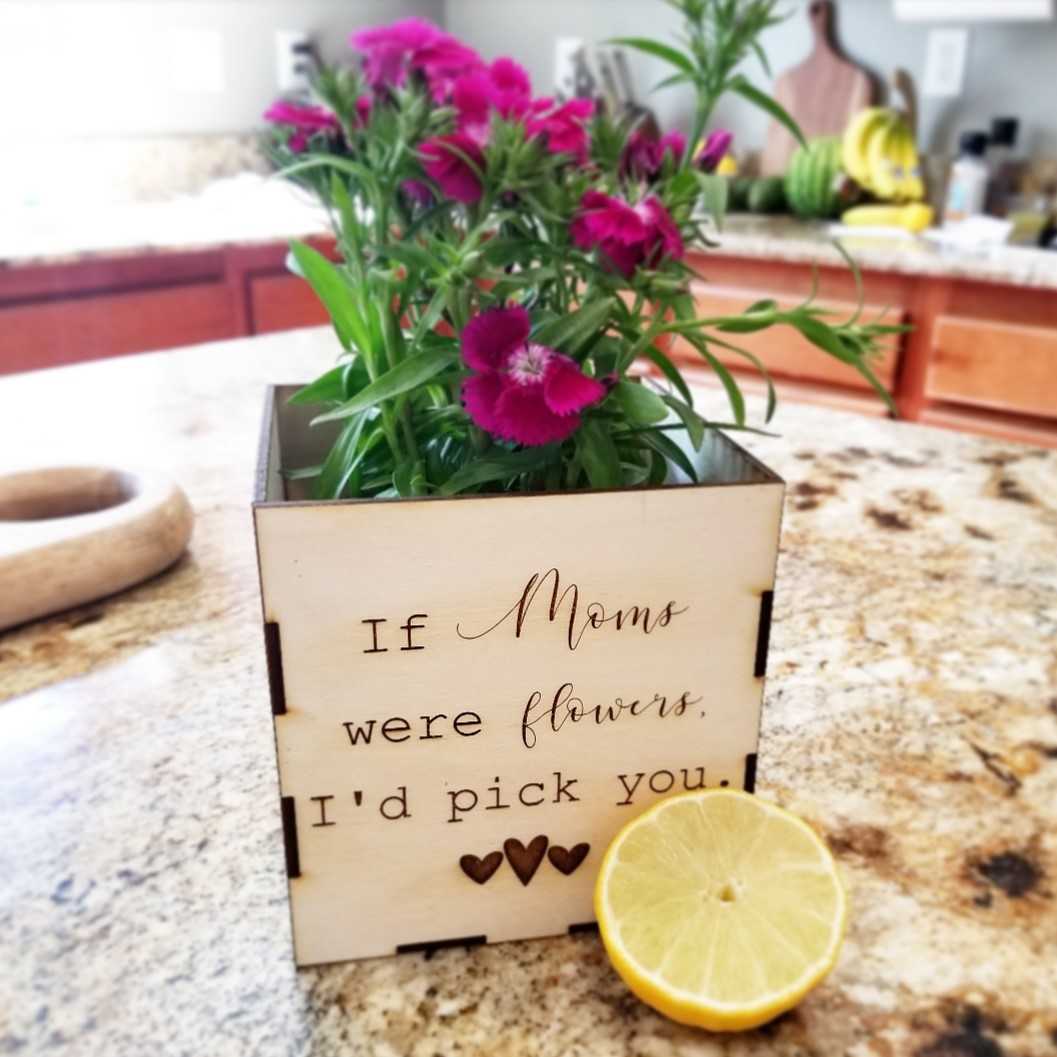 If Moms
were flowers,
I'd pick you.